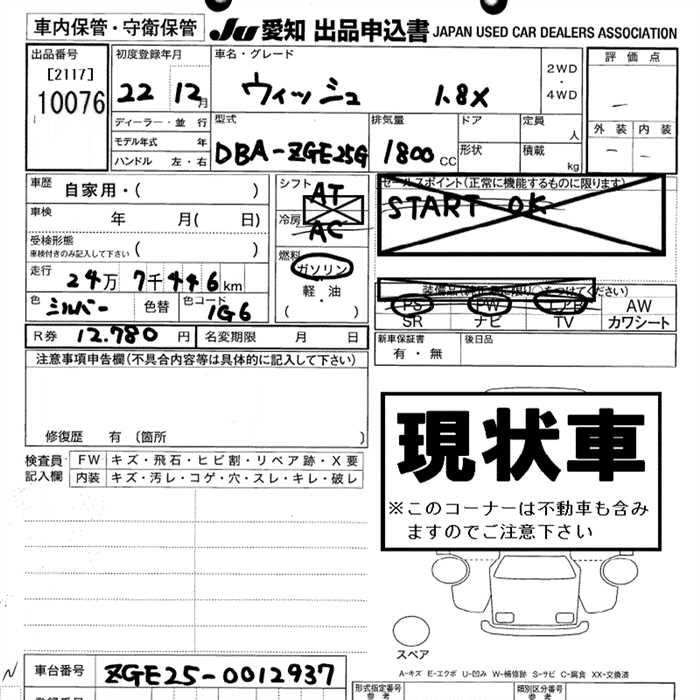 車内保管・守衛保管
JU 愛知 出品申込書 JAPAN USED CAR DEALERS ASSOCIATION
出品番号
[2117]
10076
初度登録年月
22 12月
車名・グレード
ウィッシュ 1.8X
2WD
・
4WD
評価点
外装 内装
ディーラー・並行
モデル年式 年
ハンドル 左・右
型式
DBA-ZGE25G
排気量
1800 CC
ドア
形状
定員
人
積載
kg
車歴 自家用・( )
車検 年 月( 日)
受検形態
車検付きのみ記入して下さい ( )
走行 24万7千446km
色 シルバー 色替 色コード 1G6
シフト AT
冷房 AC
燃料
ガソリン
軽・油
( )
セールスポイント(正常に機能するものに限ります)
START OK
R券 12.780円 名変期限 月 日
PS PW エアB AW
SR ナビ TV カワシート
新車保証書
有・無
後日品
注意事項申告欄(不具合内容等は具体的に記入して下さい)
修復歴 有 〔箇所 〕
現状車
※このコーナーは不動車も含み
ますのでご注意下さい
検査員
記入欄
FW キズ・飛石・ヒビ割・リペア跡・X要
内装 キズ・汚レ・コゲ・穴・スレ・キレ・破レ
スペア
A-キズ E-エクボ U-凹み W-補修跡 S-サビ C-腐食 XX-交換済
車台番号 ZGE25-0012937
型式指定番号
参考
類別区分番号
参考